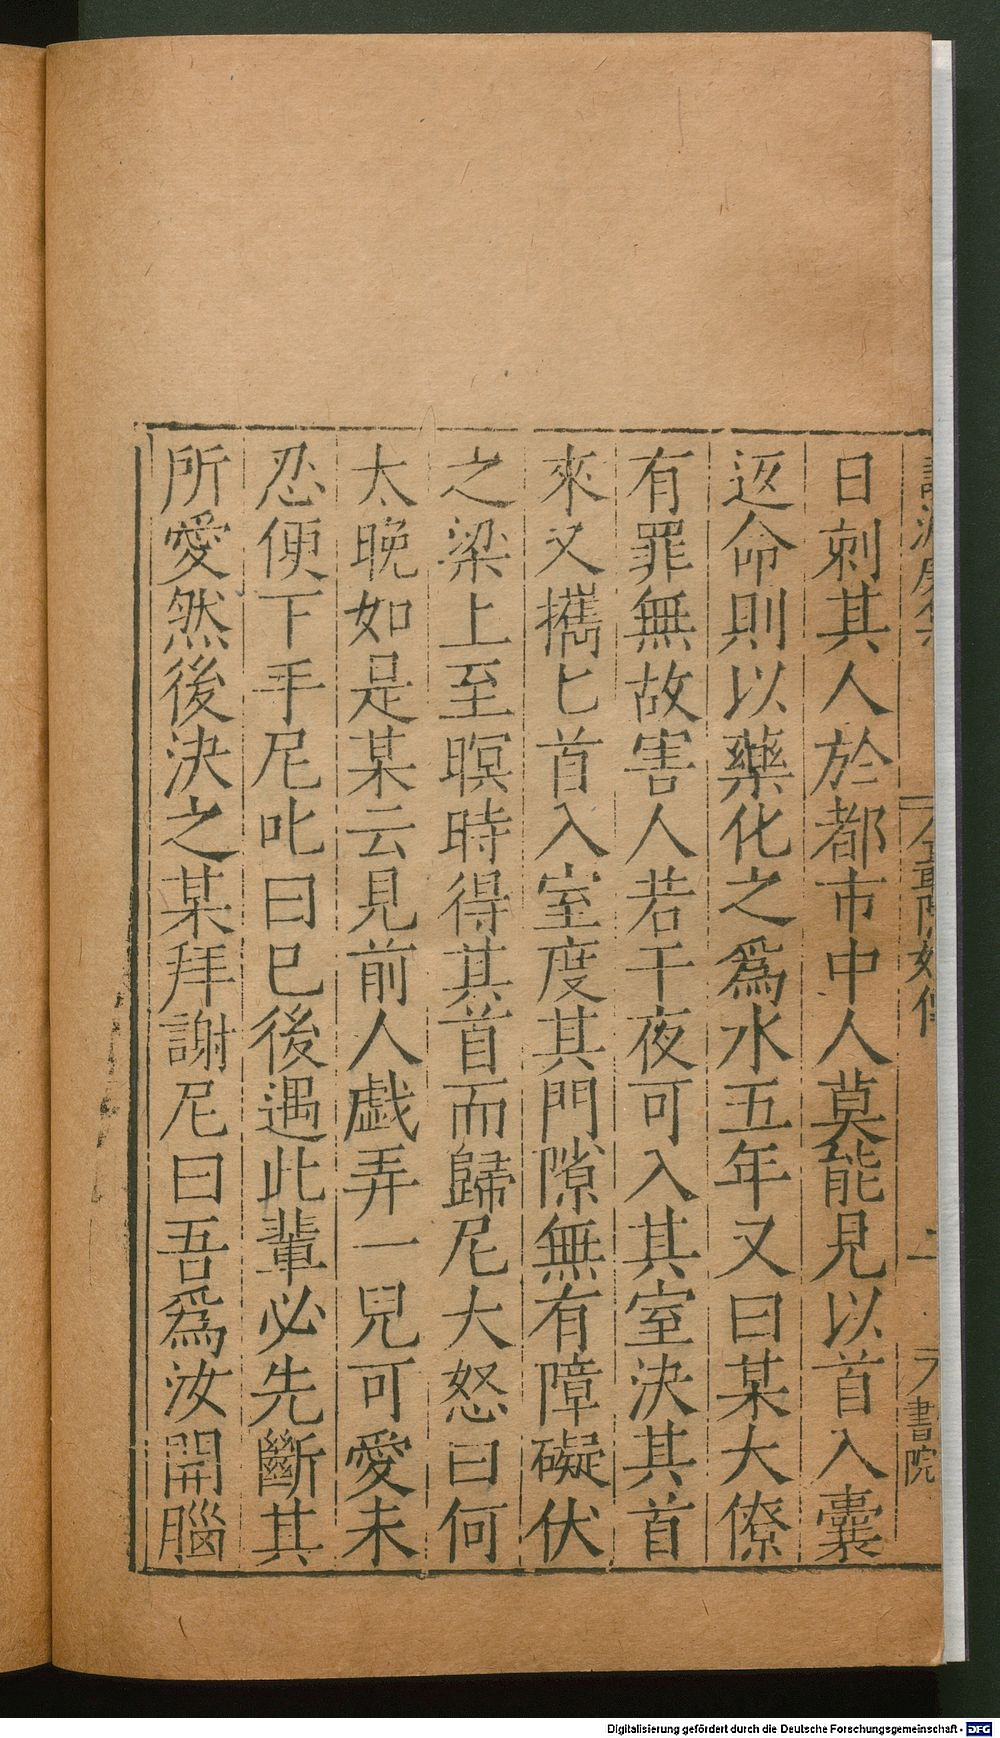 日刺其人於都市中人莫能見以首入囊
返命則以藥化之爲水五年又曰某大僚
有罪無故害人若干夜可入其室決其首
來又攜匕首入室度其門隙無有障礙伏
之梁上至暝時得其首而歸尼大怒曰何
太晚如是某云見前人戯弄一兒可愛未
忍便下手尼叱曰已後遇此輩必先斷其
所愛然後決之某拜謝尼曰吾爲汝開腦
書院
Digitalisierung gefördert durch die Deutsche Forschungsgemeinschaft - DFG